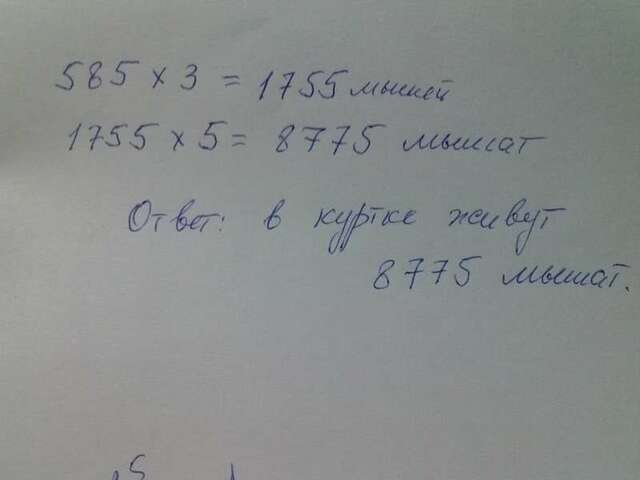 585 x 3 = 1755 мышей
1755 x 5 = 8775 мышат
Ответ: в куртке живут
8775 мышат.